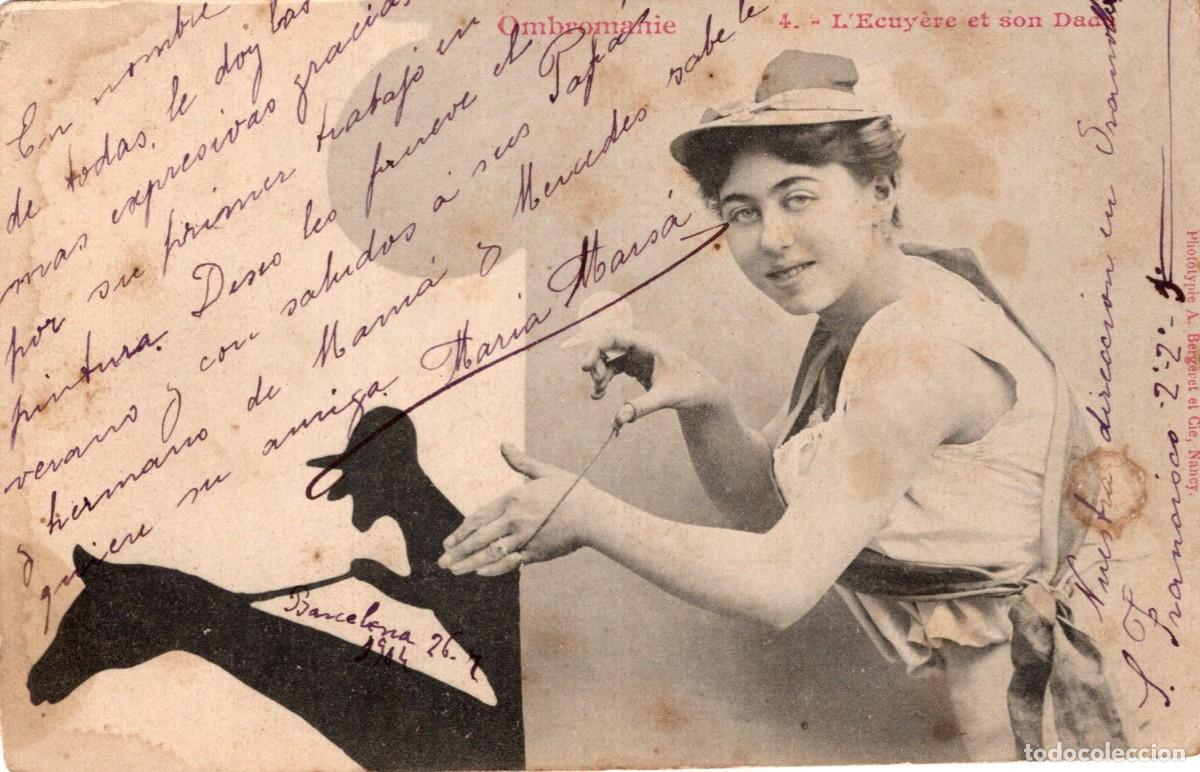 Ombromanie
4. - L'Ecuyère et son Dada
En nombre
de todas, le doy las
mas expresivas gracias
por su primer trabajo en
pintura. Deseo les prueve el
verano y con saludos á sus Papá
y hermano de Mamá y Mercedes sabe le
quiere su amiga María Marsá
Barcelona 26-7
1904
Nuestra direccion en
S. Francisco 2-2º-
Phototypie A. Bergeret et Cie, Nancy.
todocoleccion